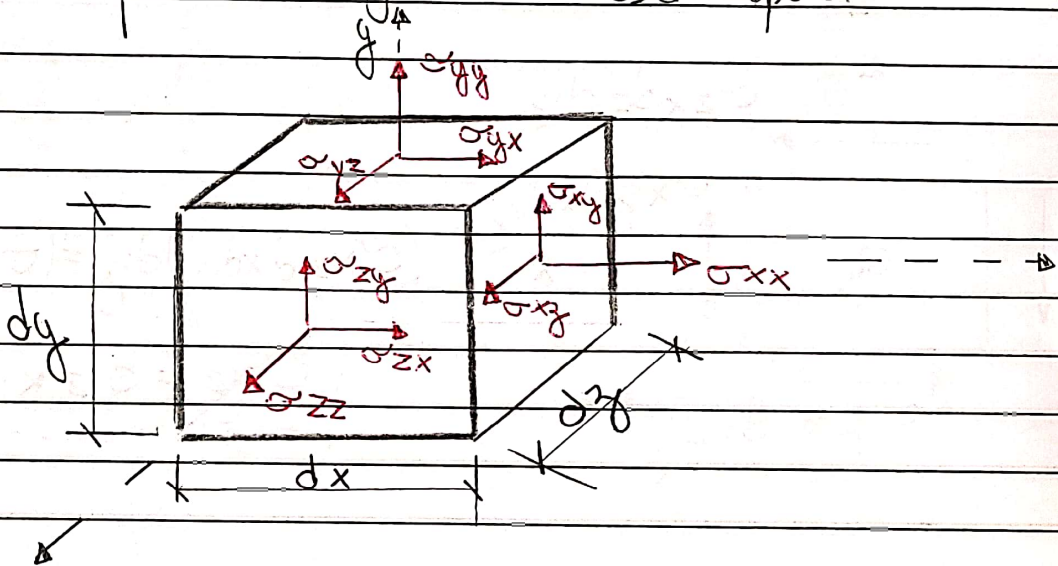 y
σyy
σyx
σyz
σxy
σxx
σxz
σzy
σzx
σzz
dy
dz
dx